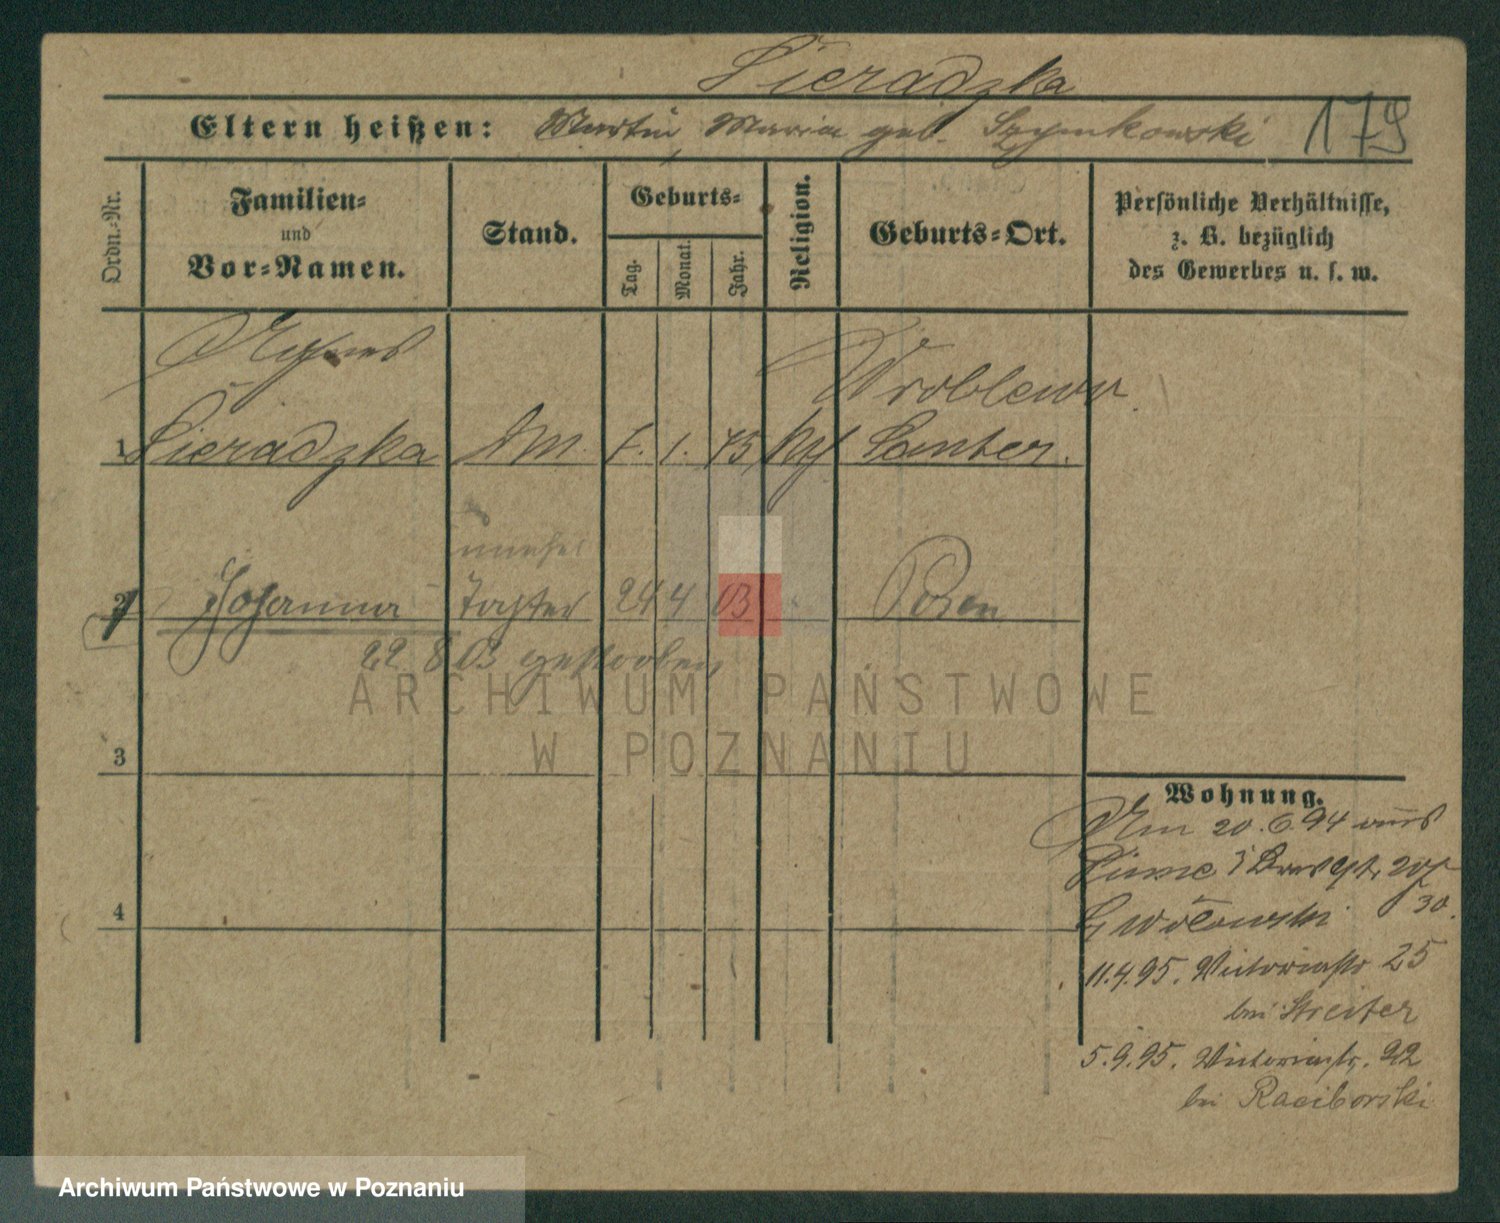 Sieradzka
Eltern heißen: Martin, Maria geb. Szymkowski 179
Ordn.-Nr.
Familien-
und
Vor-Namen.
Stand.
Geburts-
Tag.
Monat.
Jahr.
Religion.
Geburts-Ort.
Persönliche Verhältnisse,
z. B. bezüglich
des Gewerbes u. s. w.
Agnes
Wroblewo
1 Sieradzka 7. 1. 75 Samter.
unehel
2 Johanna Tochter 24 4 03 Posen
22 8 03 gestorben
3
4
Wohnung.
Am 20.6.94 aus
11.4.95. Victoriastr 25
bei Streiter
5.9.95. Victoriastr. 22
bei Raciborski
ARCHIWUM PAŃSTWOWE
W POZNANIU
Archiwum Państwowe w Poznaniu